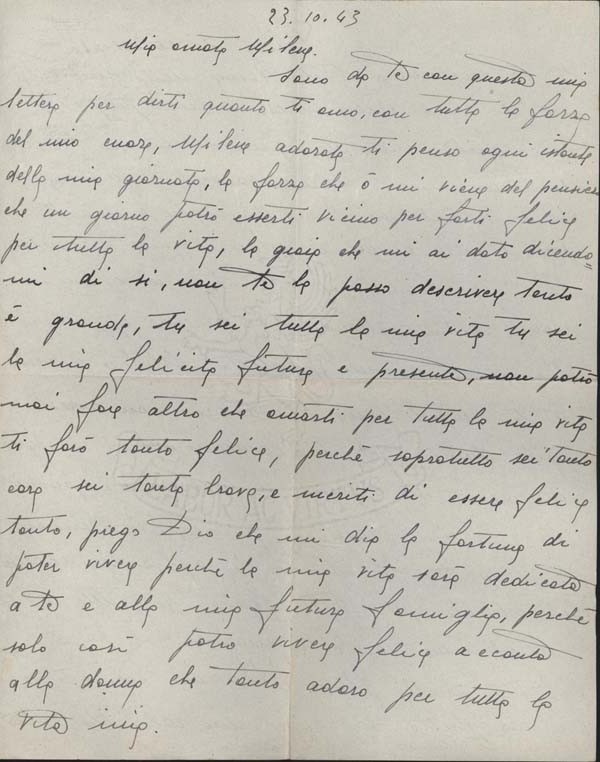 23.10.43
Mia amata Milena.
Sono da te con questa mia
lettera per dirti quanto ti amo, con tutta la forza
del mio cuore, Milena adorata ti penso ogni istante
della mia giornata, la forza che ò mi viene del pensiero
che un giorno potrò esserti vicino per farti felice
per tutta la vita, la gioia che mi ai dato dicendo=
mi di si, non te la posso descrivere tanto
è grande, tu sei tutta la mia vita tu sei
la mia felicita futura e presente, non potrò
mai fare altro che amarti per tutta la mia vita
ti farò tanto felice, perchè sopratutto sei tanto
cara sei tanta brava, e meriti di essere felice
tanto, prego Dio che mi dia la fortuna di
poter vivere perchè la mia vita sarà dedicata
a te e alla mia futura famiglia, perchè
solo così potrò vivere felice accanto
alla donna che tanto adoro per tutta la
vita mia.